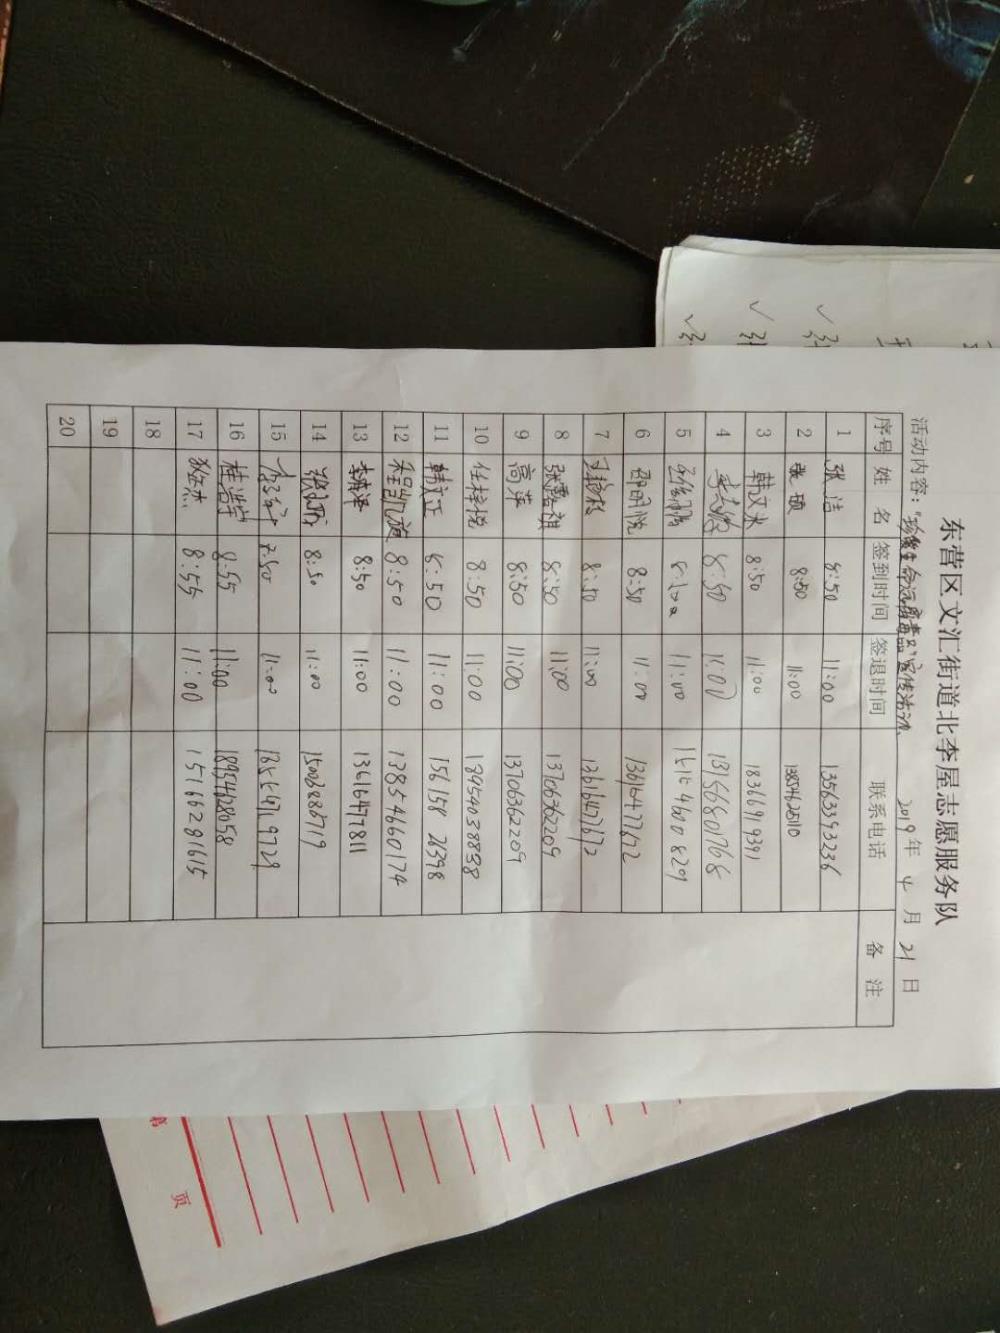 东营区文汇街道北李屋志愿服务队
活动内容：“珍爱生命远离毒品”宣传活动 2019年 4月 21日
序号 姓名 签到时间 签退时间 联系电话 备注
1 张洁 8:50 11:00 13563393236
2 张硕 8:50 11:00 13854625110
3 韩文来 8:50 11:00 18366919391
4 8:50 11:00 13156680768
5 11:00 15154600829
6 邵明悦 8:50 11:00 13615477672
7 8:50 11:00 13616477672
8 张露祺 8:50 11:00 13706362209
9 高萍 8:50 11:00 13706362209
10 任梓悦 8:50 11:00 18954038898
11 韩文正 8:50 11:00 15615826398
12 程凯旋 8:50 11:00 13854660174
13 8:50 11:00 13616477811
14 8:50 11:00 15003886719
15 7:50 11:00
16 桂浩宇 8:55 11:00 18954628058
17 狄缶杰 8:55 11:00 15166281615
18
19
20
第 页